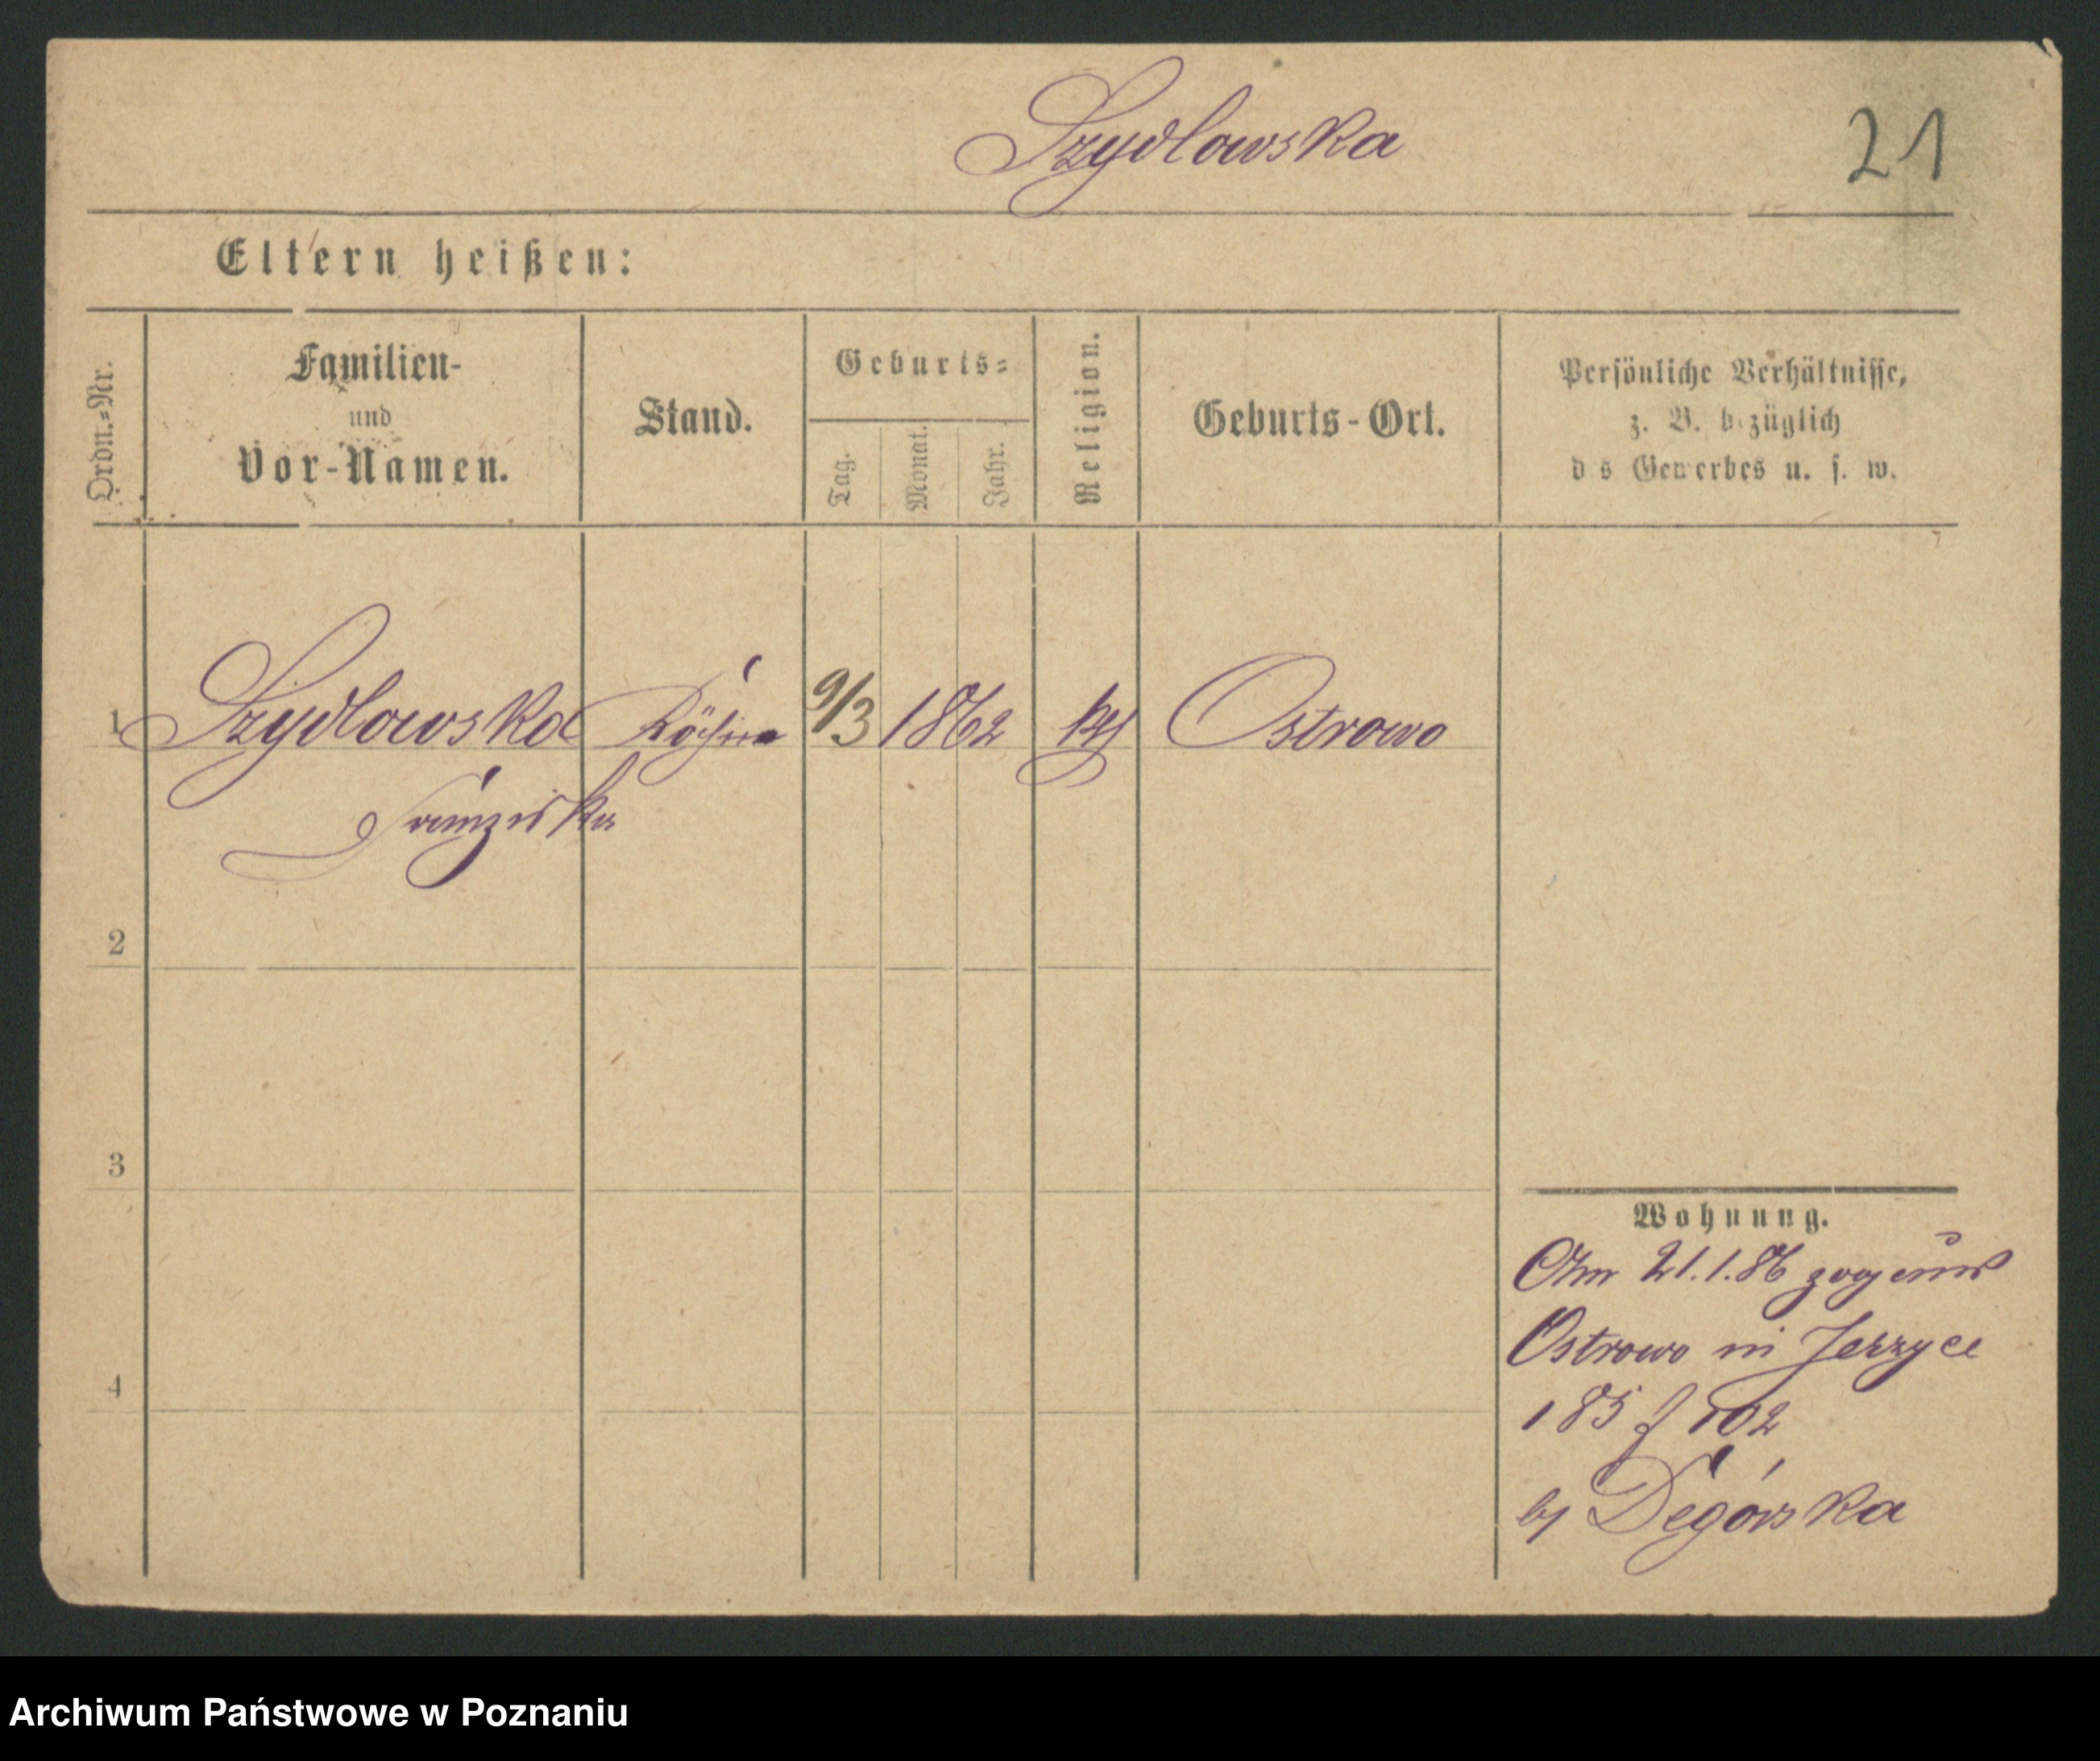 Szydlowska
21
Eltern heißen:
Ordn.=Nr.
Familien-
und
Vor-Namen.
Stand.
Geburts=
Tag.
Monat.
Jahr.
Religion.
Geburts-Ort.
Persönliche Verhältnisse,
z. B. bezüglich
des Gewerbes u. s. w.
1 Szydlowska Köchin 9/3 1862 Ostrowo
Franziska
2
3
4
Wohnung.
Am 21.1.86 zog aus
Ostrowo in Jerzyce
185 f 102
by Degórska
Archiwum Państwowe w Poznaniu